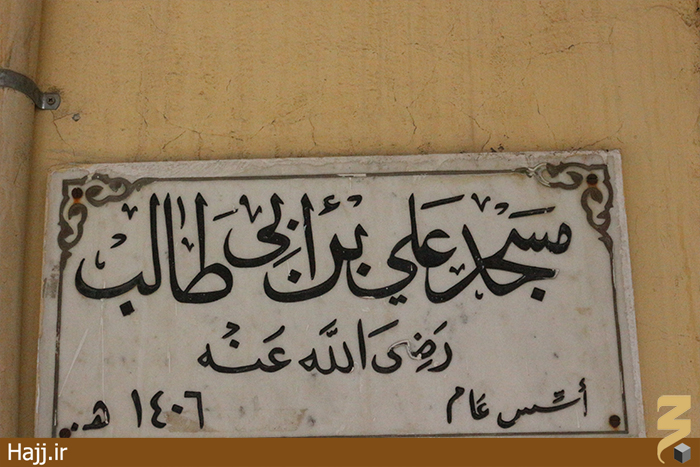 مسجد علي بن ابي طالب
رضى الله عنه
أسس عام ١٤٠٦ هـ
Hajj.ir